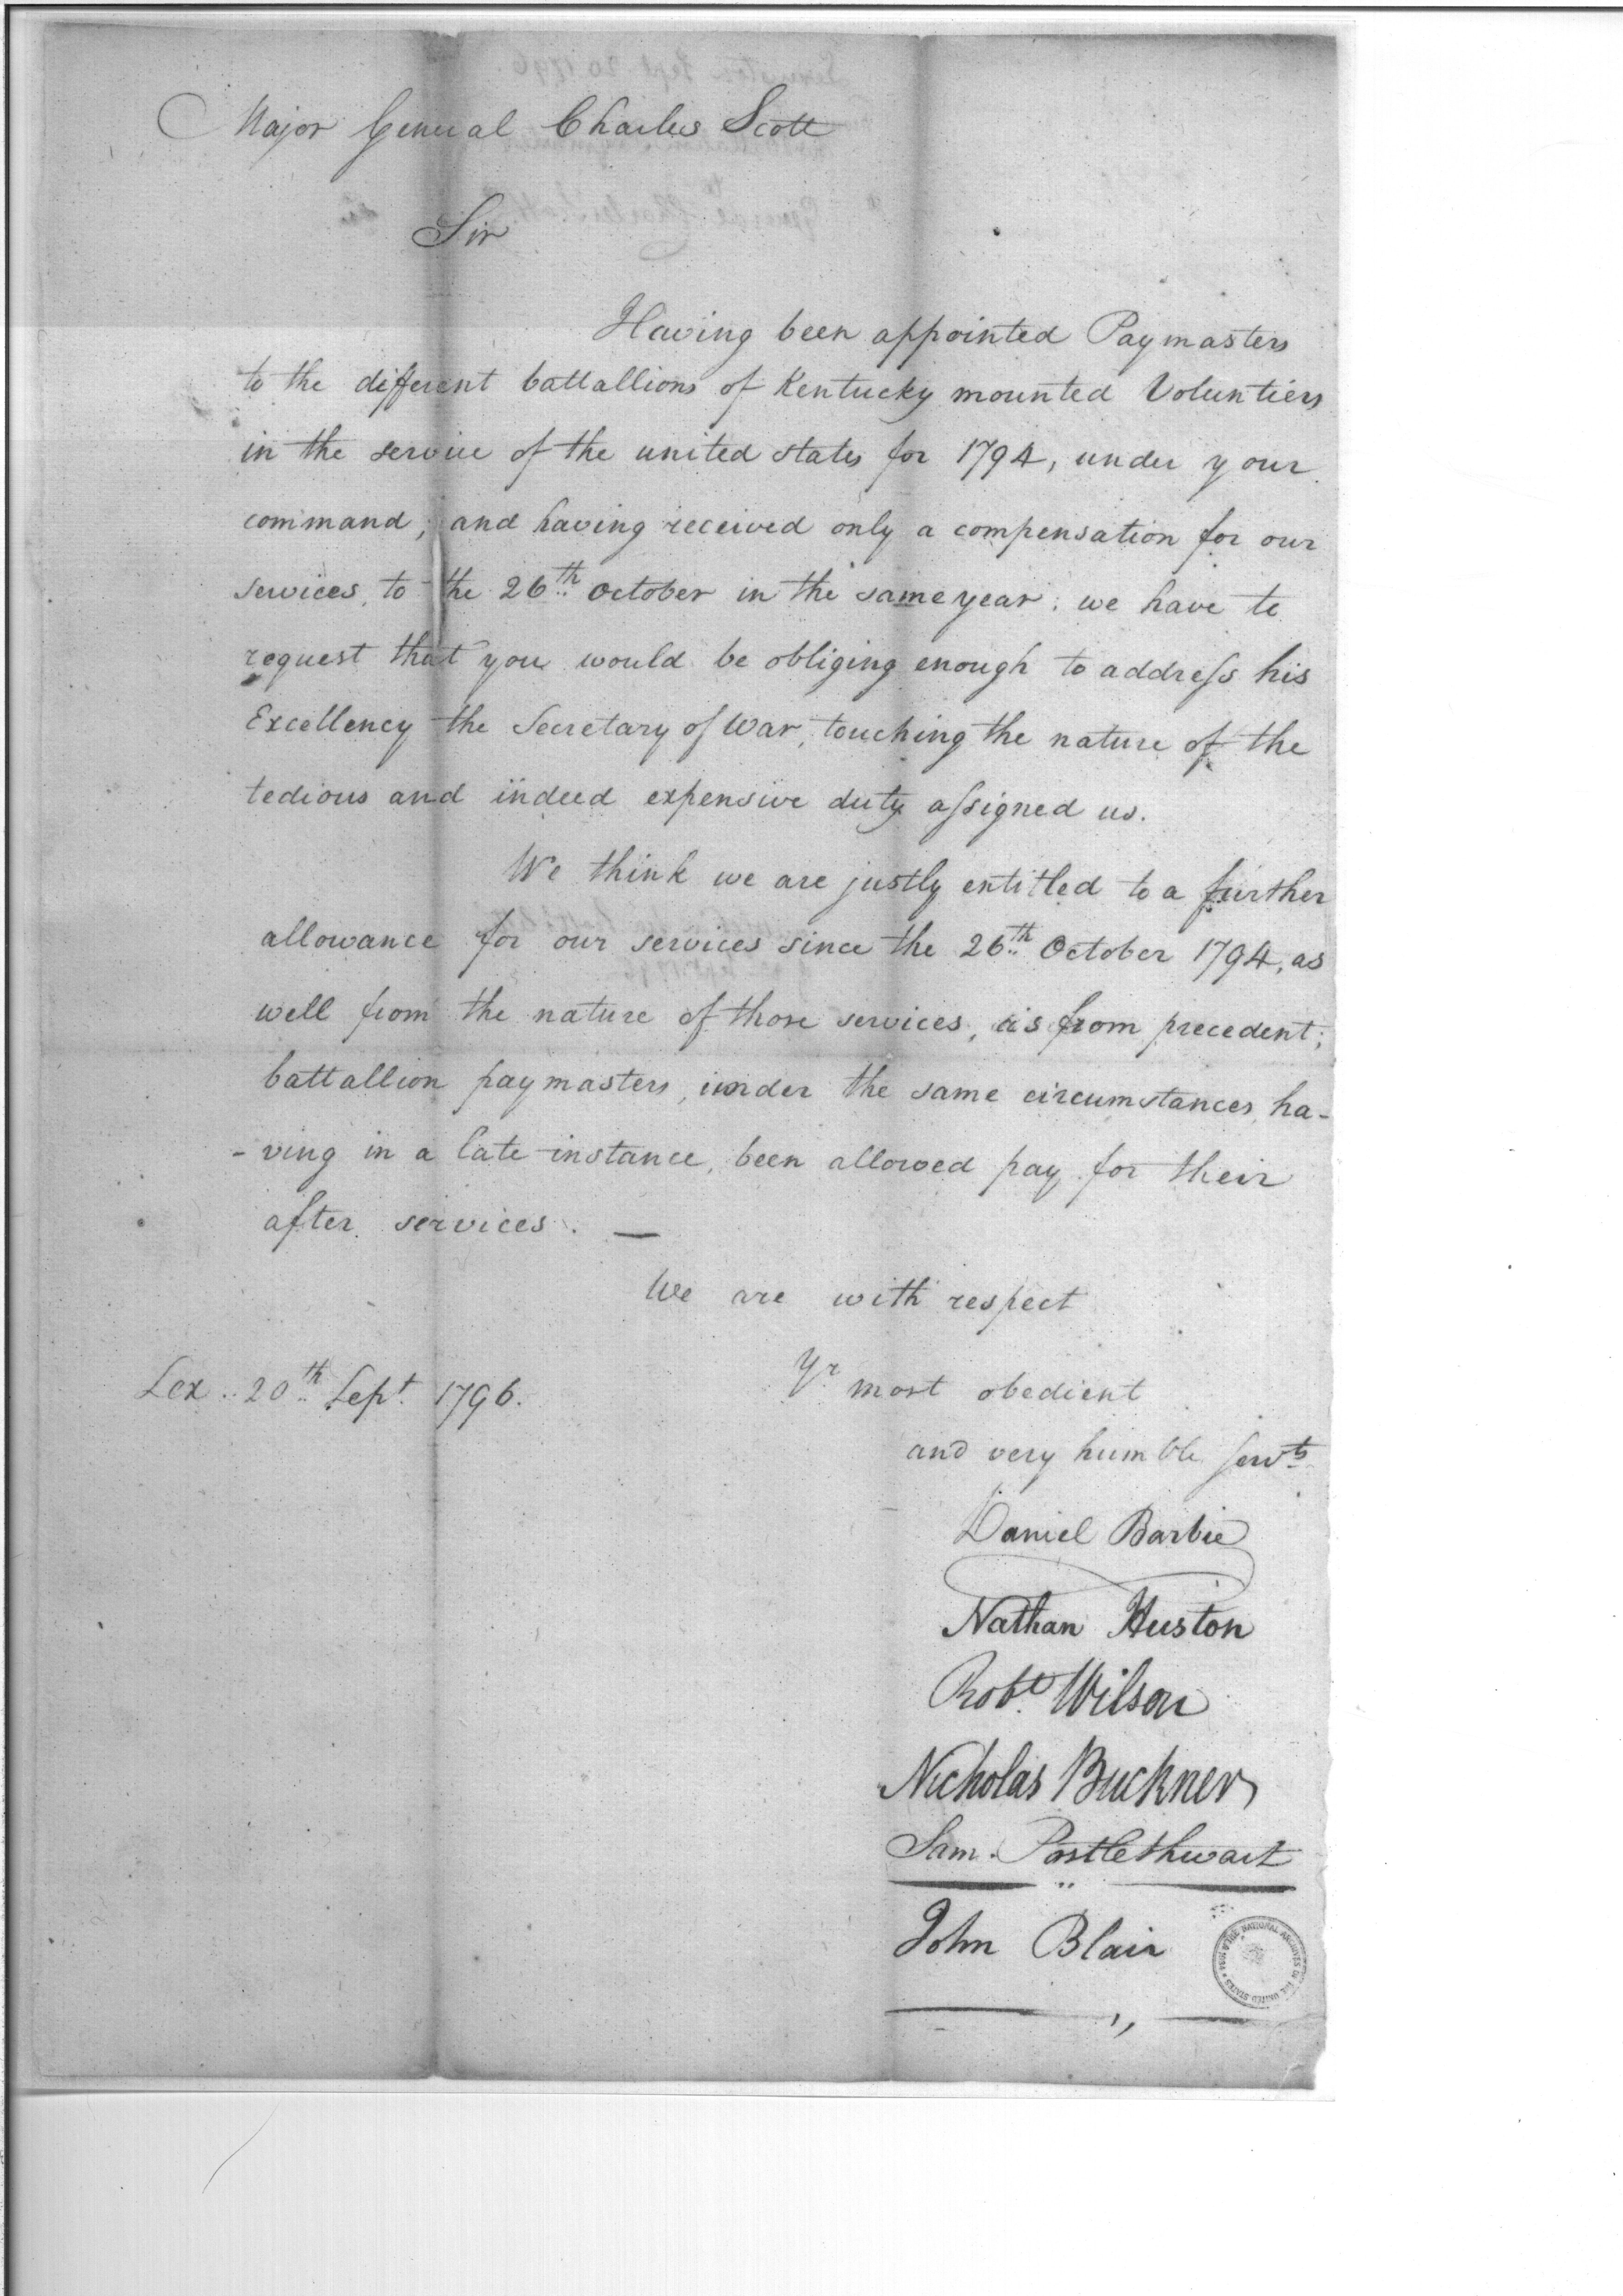 Major General Charles Scott
Sir
Having been appointed Paymasters
to the different battallions of Kentucky mounted Voluntiers
in the service of the united states for 1794, under your
command; and having received only a compensation for our
services, to the 26th October in the same year; we have to
request that you would be obliging enough to addreſs his
Excellency the Secretary of War, touching the nature of the
tedious and indeed expensive duty aſsigned us.
We think we are justly entitled to a further
allowance for our services since the 26th October 1794, as
well from the nature of those services, as from precedent;
battallion paymasters, under the same circumstances, ha-
-ving in a late instance, been allowed pay for their
after services. —
We are with respect
Yr most obedient
Lex. 20th Sept 1796.
and very humble servts
Daniel Barbie
Nathan Huston
Robt Wilson
Nicholas Buckner
Sam. Postlethwait
John Blair
THE NATIONAL ARCHIVES OF THE UNITED STATES